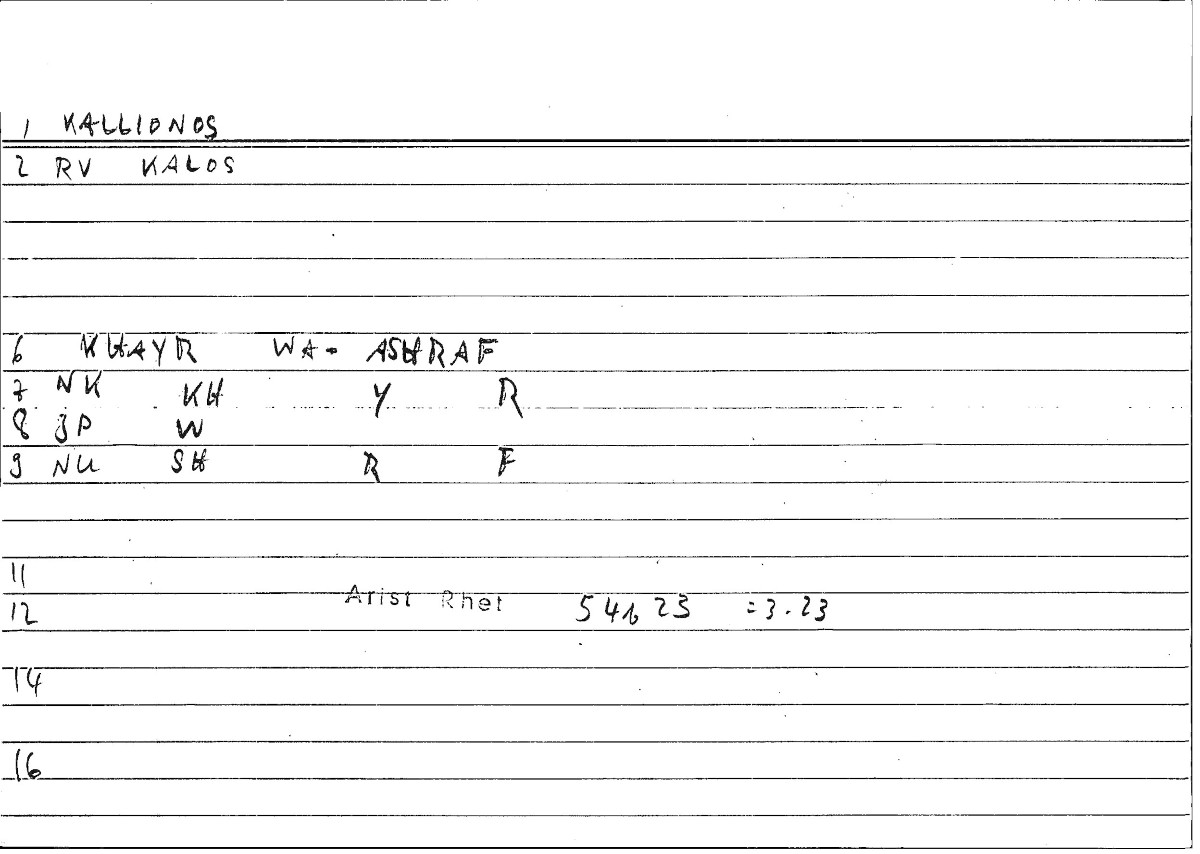 1 KALLIONOS
2 RV KALOS
6 KHAYR WA- ASHRAF
7 NK KH Y R
8 JP W
9 NU SH R F
11
12 Arist Rhet 54b23 =3.23
14
16